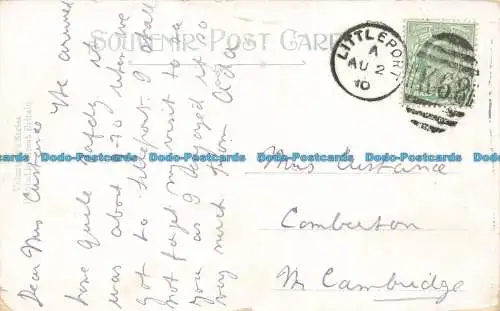 SOUVENIR POST CARD
LITTLEPORT
A
AU 2
10
K68
Dear Mrs
We arrived
home quite safely it
was about 8-30 when we
got to Littleport. I shall
not forget my visit to
you as I enjoyed it so
very much from Ada
Mrs
Comberton
Nr Cambridge
Dodo-Postcards Dodo-Postcards Dodo-Postcards Dodo-Postcards Dodo-Postcards